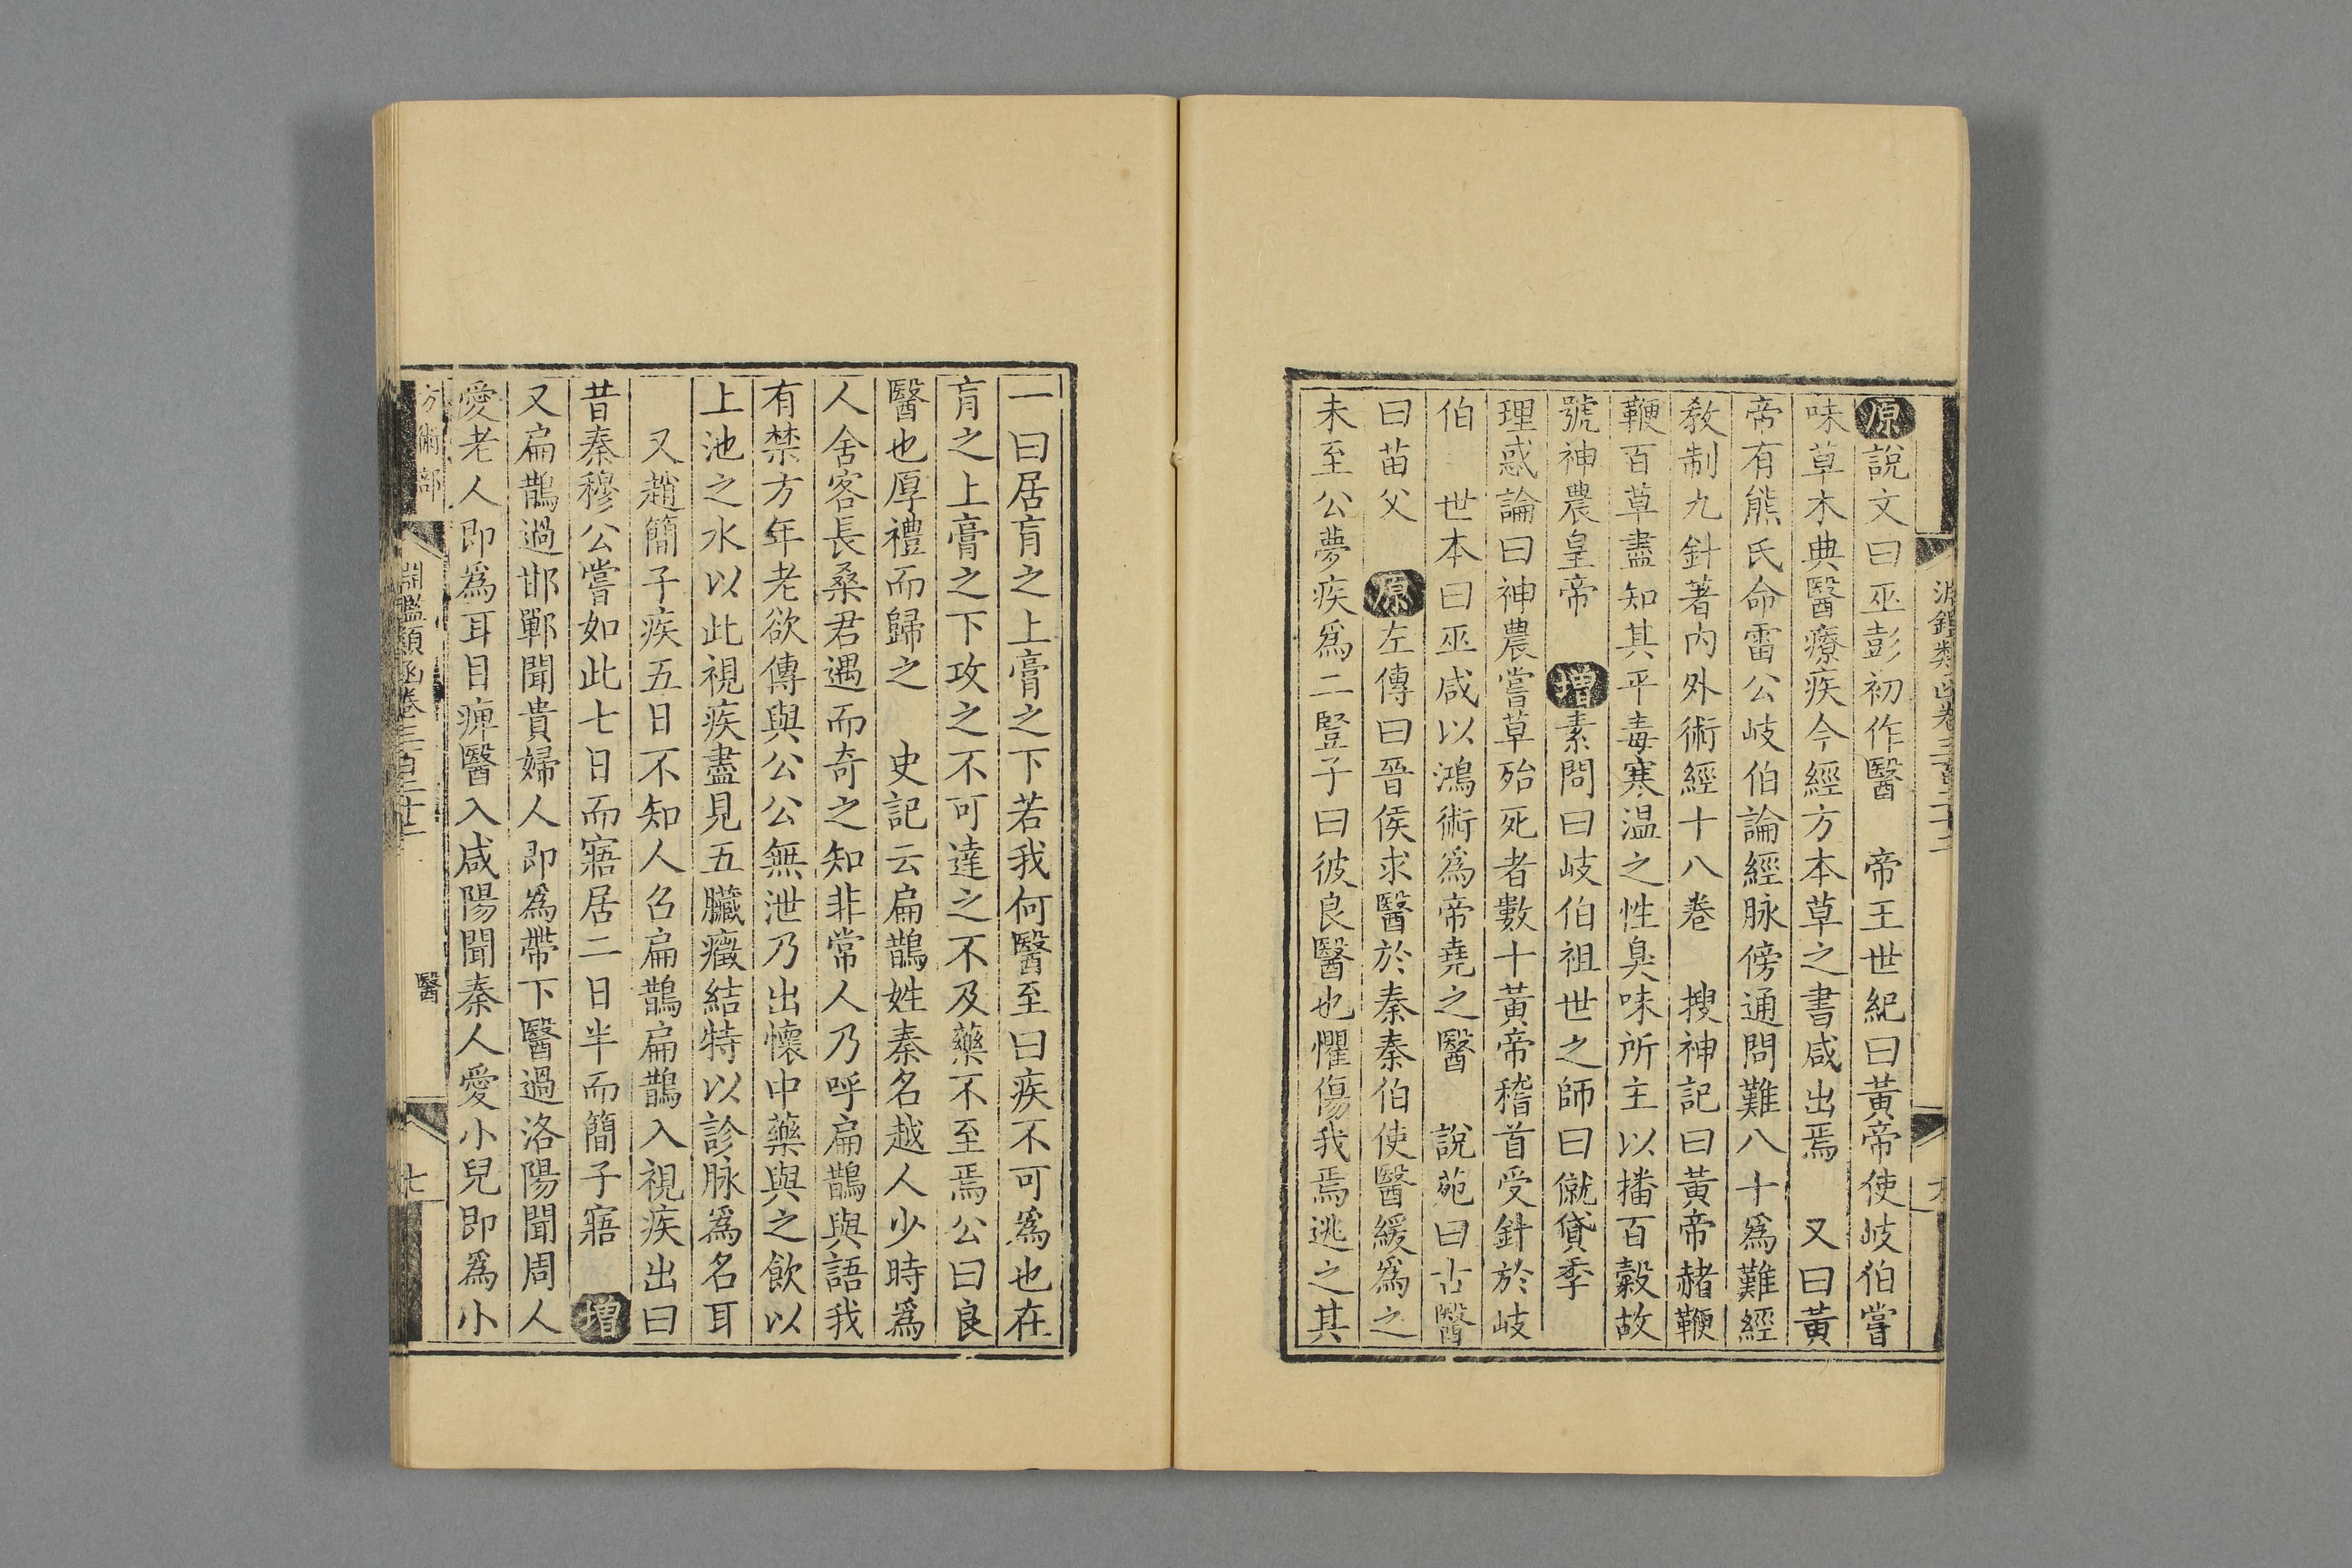 原說文曰巫彭初作醫　帝王世紀曰黃帝使岐伯嘗
味草木典醫療疾今經方本草之書咸出焉　又曰黃
帝有熊氏命雷公岐伯論經脉傍通問難八十爲難經
敎制九針著內外術經十八卷　搜神記曰黃帝赭鞭
鞭百草盡知其平毒寒温之性臭味所主以播百穀故
號神農皇帝　增素問曰岐伯祖世之師曰僦貸季
理惑論曰神農嘗草殆死者數十黃帝稽首受針於岐
伯　世本曰巫咸以鴻術爲帝堯之醫　說苑曰古醫
曰苗父　原左傳曰晉侯求醫於秦秦伯使醫緩爲之
未至公夢疾爲二豎子曰彼良醫也懼傷我焉逃之其
一曰居肓之上膏之下若我何醫至曰疾不可爲也在
肓之上膏之下攻之不可達之不及藥不至焉公曰良
醫也厚禮而歸之　史記云扁鵲姓秦名越人少時爲
人舍客長桑君遇而奇之知非常人乃呼扁鵲與語我
有禁方年老欲傳與公公無泄乃出懷中藥與之飲以
上池之水以此視疾盡見五臟癥結特以診脉爲名耳
又趙簡子疾五日不知人召扁鵲扁鵲入視疾出曰
昔秦穆公嘗如此七日而寤居二日半而簡子寤　增
又扁鵲過邯鄲聞貴婦人即爲帶下醫過洛陽聞周人
愛老人即爲耳目痺醫入咸陽聞秦人愛小兒即爲小
方術部　淵鑑類函卷三百二十二　醫　七